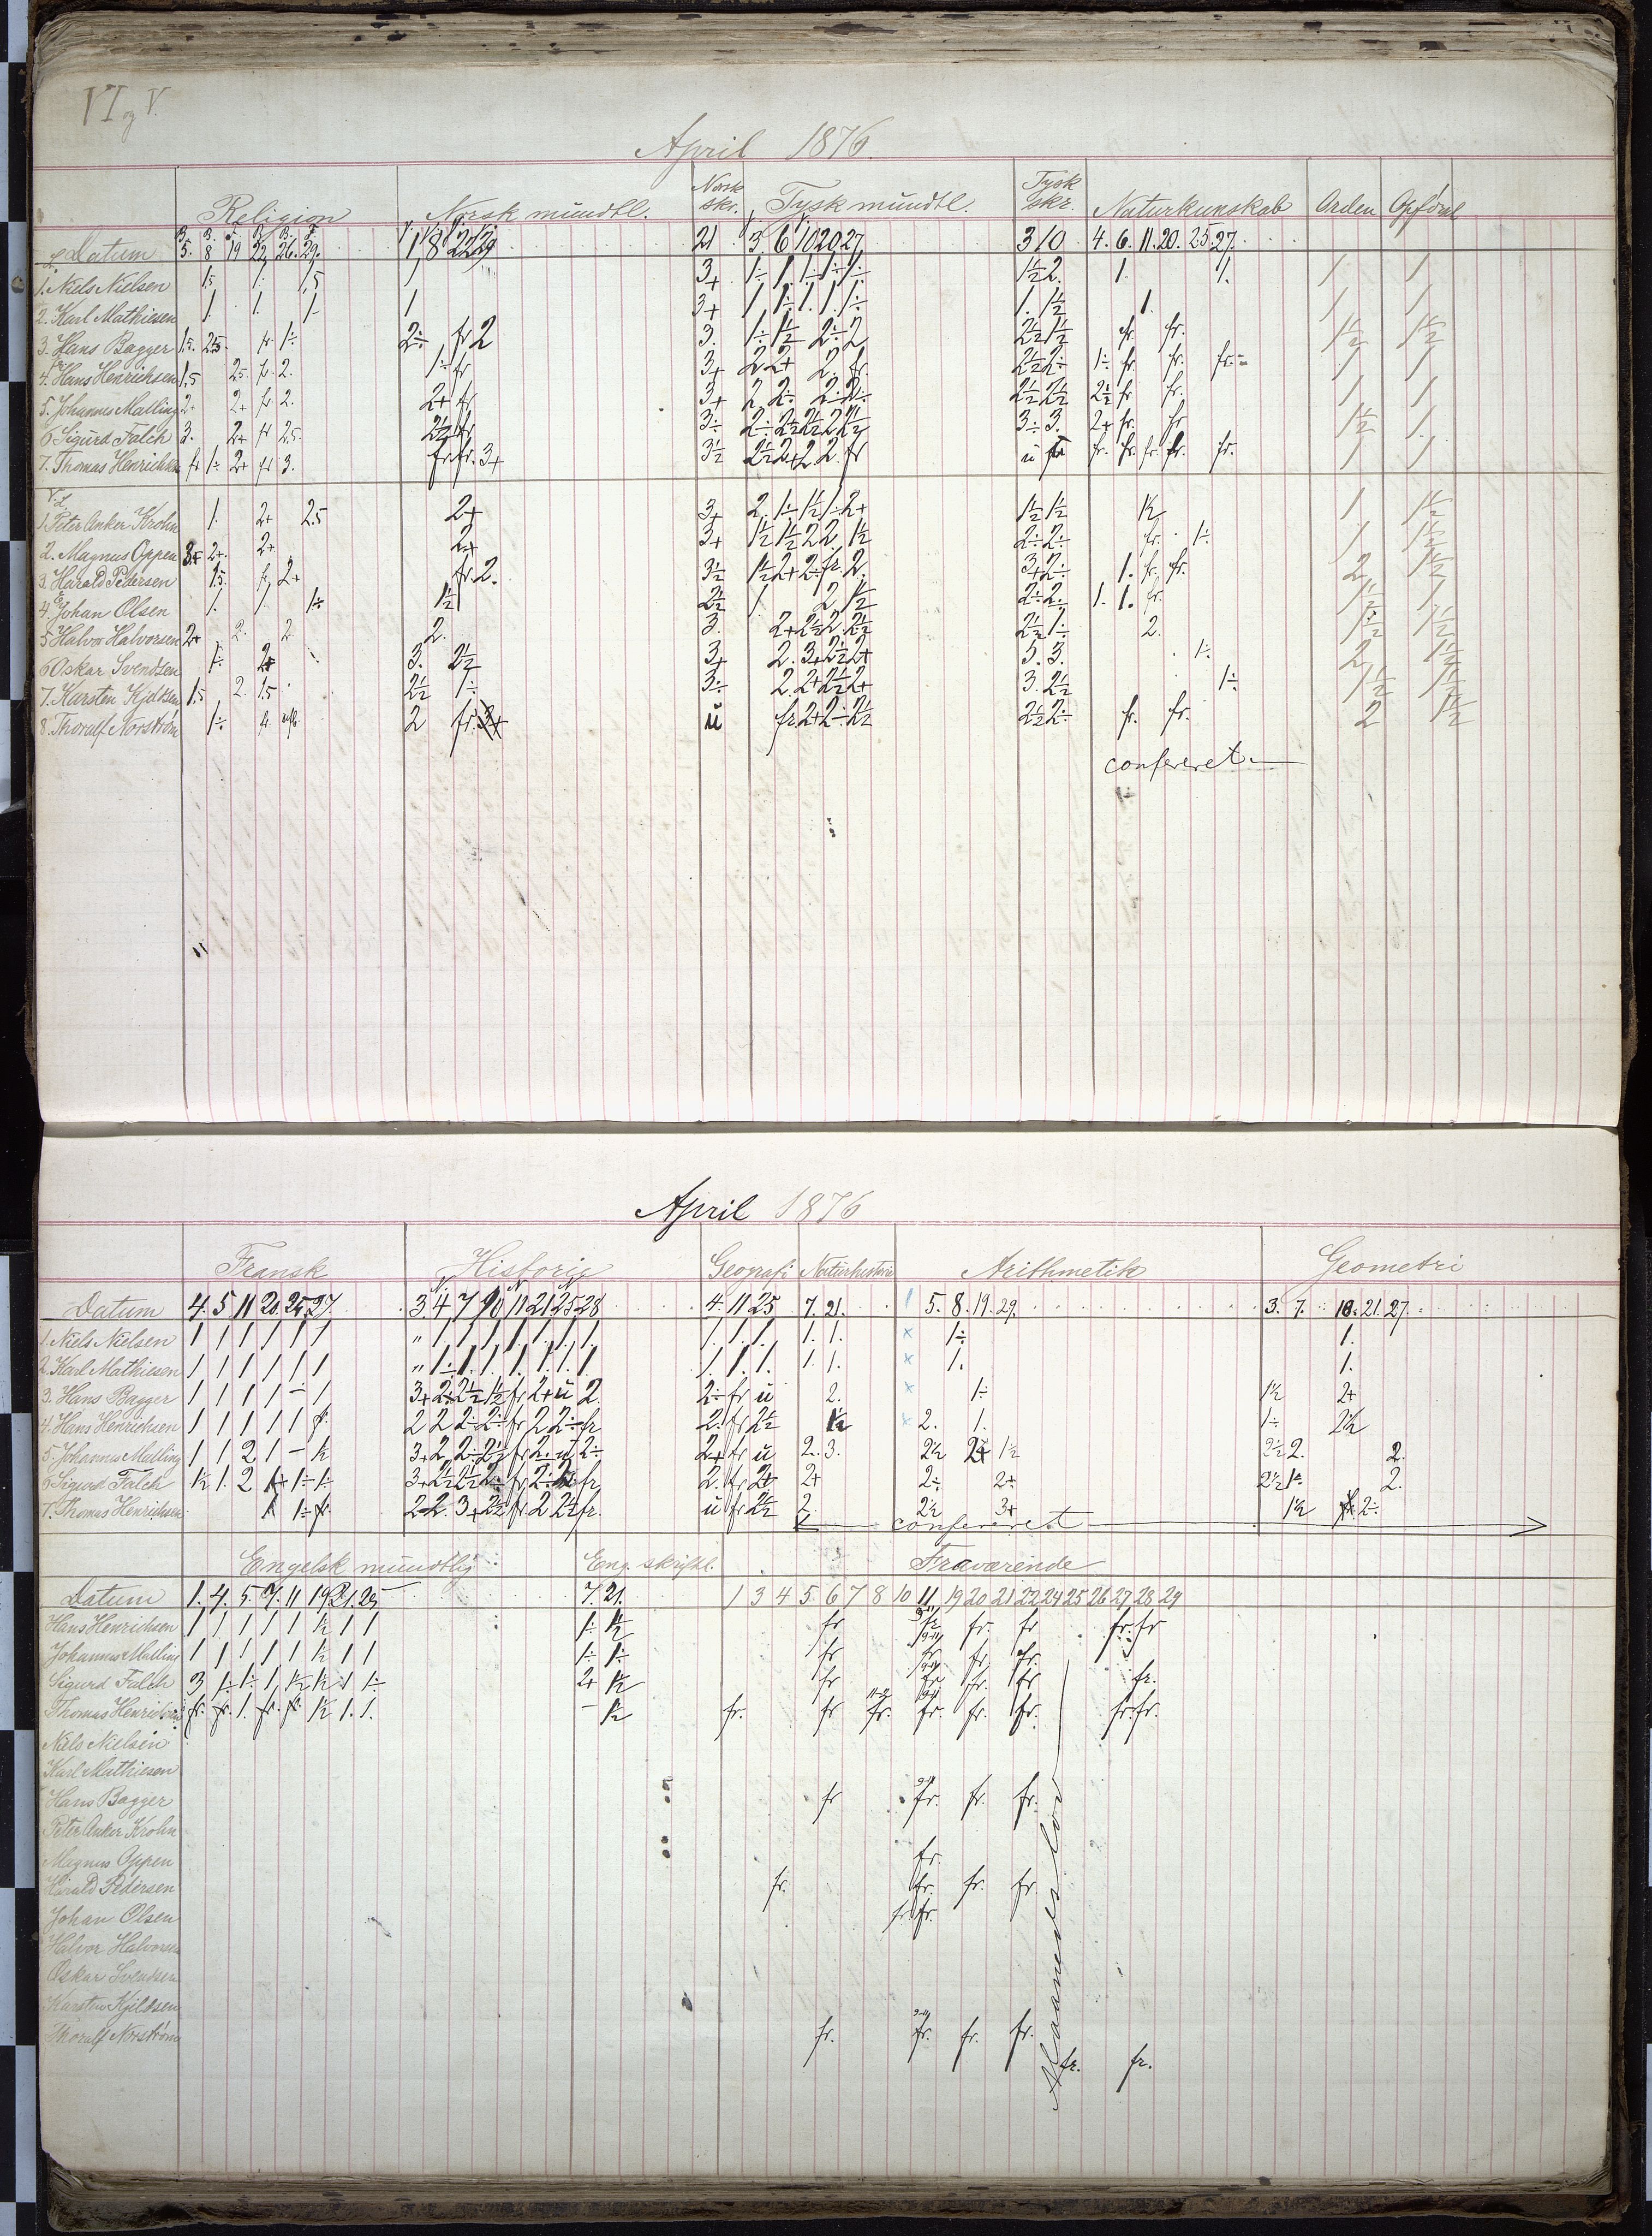 VI og V.
April 1876.
Religion Norsk mündtl. Norsk skr. Tysk mündtl. Tysk skr. Naturkunskab Orden Opførsl
Datum 5. 8 19 22. 26. 29. 1 8 22 29 21 3 6 10 20 27 3 10 4. 6. 11. 20. 25 27.
1. Niels Nielsen 1 3+ 1÷ 1 1÷ 1÷ 1÷ 1½ 2. 1. 1. 1 1
2. Karl Mathiesen 1. 1. 1 1 3+ 1 1÷ 1. 1. 1÷ 1. 1½ 1. 1 1
3. Hans Bagger 1.5. 2.5 fr 1÷ 2÷ fr 2 3. 1÷ 1½ 2÷ 2 2½ 1½ fr. fr. 1½ 1½
4. Hans Henrichsen 1.5 2.5. fr. 2. 1÷ fr 3+ 2 2+ 2. fr. 2½ 2÷ 1÷ fr. fr. fr. 1 1
5. Johannes Malling 2+ 2+ fr 2. 2+ fr 3+ 2. 2÷ 2÷ 2÷ 2½ 2½ 2½ fr fr. 1 1
6 Sigurd Falch 3. 2+ fr 2.5. 2½ fr 3÷ 2÷ 2½ 2½ 2 2½ 3÷ 3. 2+ fr. fr 1½ 1.
7. Thomas Henrichsen fr 1÷ 2+ fr 3. fr. fr. 3+ 3½ 2½ 2+ 2. 2. fr ü fr fr. fr. fr. fr. fr. 1 1
1 Peter Anker Krohn 1. 2+ 2.5 2+ 3+ 2. 1÷ 1½ 1÷ 2+ 1½ 1½ 1½ 1 1½
2. Magnus Oppen 3+ 2+. 2+ 2+ 3+ 1½ 1½ 2 2 1½ 2÷ 2÷ fr. 1÷ 1 1½
3. Harald Pedersen 1.5. fr 2+ fr. 2. 3½ 1½ 2+ 2÷ fr. 2. 3+ 2÷ 1. fr. fr. 2 1½
4. Johan Olsen 1. 1. 1÷ 1½ 2½ 1. 2 1½ 2÷ 2. 1. 1. fr. 1½ 1
5 Halvor Halvorsen 2+ 2. 2 2. 3. 2+ 2½ 2. 2½ 2½ 1÷ 2. 1½ 1½
6 Oskar Svendsen 1÷ 2+ 3. 2½ 3+ 2. 3+ 2½ 2+ 3. 3. 1÷ 2 1½
7. Karsten Kjeldsen 1.5 2. 1.5 2½ 1÷ 3÷ 2. 2+ 2½ 2+ 3. 2½ 1÷ 1½ 1½
8. Thoralf Norström 1÷ fr. 2 fr. 3+ ü fr. 2+ 2÷ 2½ 2½ 2÷ fr. fr. 2 1½
confereret
April 1876
Fransk Historie Geografi Naturhistorie Arithmetik Geometri
Datum 4. 5 11 20. 25. 27. 3. 4 7 10 11 21 25 28 4. 11 25 7. 21. 5. 8. 19. 29. 3. 7. 18. 21. 27.
1. Niels Nielsen 1 1 1 1 1 1 " 1. 1 1 1 1. 1. 1. 1. 1. 1. 1. 1. 1÷ 1.
2. Karl Mathiesen 1 1 1 1 1 1 " 1÷ 1. 1. 1. 1. 1. 1. 1. 1. 1. 1. 1. 1. 1.
3. Hans Bagger 1 1 1 1 – 1 3+ 2÷ 2½ 1½ fr 2+ ü 2. 2÷ fr ü 2. 1÷ 1½ 2+
4. Hans Henrichsen 1 1 1 1 1 fr. 2 2 2÷ 2÷ fr 2 2÷ fr 2. fr 2½ 1½ 2. 1. 1÷ 2½
5. Johannes Malling 1 1 2 1 – 1½ 3+ 2 2÷ 2½ fr 2. – 2÷ 2+ fr ü 2. 3. 2½ 2+ 1½ 2½ 2. 2.
6 Sigurd Falch 1½ 1. 2 1+ 1÷ 1÷ 3+ 2½ 2½ 2 fr 2÷ 2 fr 2. fr 2+ 2+ 2÷ 2+ 2½ 1÷ 2.
7. Thomas Henrichsen 1 1÷ fr. 2 2. 3+ 2½ fr 2 2½ fr. ü fr 2½ 2. 2½ 3+ 1½ fr. 2÷
confereret
Engelsk mündtlig Eng. skriftl. Fraværende
Datum 1. 4. 5. 7. 11 19 21. 25 7. 21. 1 3 4 5 6 7 8 10 11 19 20 21 22 24 25 26 27 28 29
Hans Henrichsen 1 1 1 1 1 1½ 1 1 1÷ 1½ fr 9-11 fr fr. fr fr. fr
Johannes Malling 1 1 1 1 1 1½ 1 1 1÷ 1÷ fr 9-11 fr fr. fr.
Sigurd Falch 3 1÷ 1÷ 1 1½ 1½ 1 1÷ 2+ 1½ fr 9-11 fr fr. fr fr.
Thomas Henrichsen fr. fr. 1. fr. fr. 1½ 1. 1. – 1½ fr. fr 11-2 fr. 9-11 fr. fr. fr. fr. fr.
Niels Nielsen
Karl Mathiesen
Hans Bagger fr 9-11 fr. fr. fr.
Peter Anker Krohn
Magnus Oppen fr.
Harald Pedersen fr. fr. fr. fr.
Johan Olsen fr. fr.
Halvor Halvorsen
Oskar Svendsen
Karsten Kjeldsen
Thoralf Norström fr. 9-11 fr. fr. fr. fr. fr.
Maanedslov